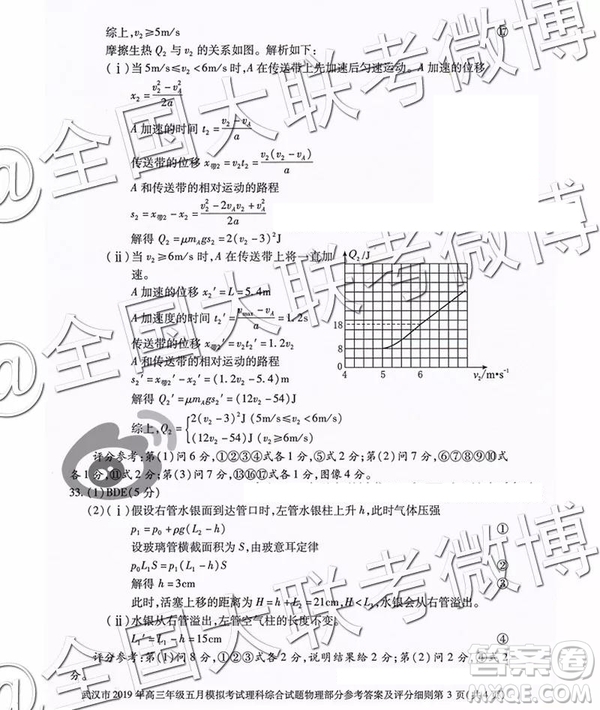 综上,v₂≥5m/s ⑰
摩擦生热 Q₂ 与 v₂ 的关系如图。解析如下:
(ⅰ)当5m/s≤v₂<6m/s时,A在传送带上先加速后匀速运动。A加速的位移
x₂=(v₂²-v_A²)/2a
A加速的时间 t₂=(v₂-v_A)/a
传送带的位移 x带₂=v₂t₂=v₂(v₂-v_A)/a
A和传送带的相对运动的路程
s₂=x带₂-x₂=(v₂²-2v_Av₂+v_A²)/2a
解得 Q₂=μm_Ags₂=2(v₂-3)²J
(ⅱ)当 v₂≥6m/s时,A在传送带上将一直加
速。
A加速的位移 x₂′=L=5.4m
A加速度的时间 t₂′=(v_max-v_A)/a=1.2s
传送带的位移 x带₂′=v₂t₂′=1.2v₂
A和传送带的相对运动的路程
s₂′=x带₂′-x₂′=(1.2v₂-5.4)m
解得 Q₂′=μm_Ags₂′=(12v₂-54)J
综上,Q₂={2(v₂-3)²J (5m/s≤v₂<6m/s)
(12v₂-54)J (v₂≥6m/s)
Q₂/J
18
8
4 5 6 v₂/m·s⁻¹
评分参考:第(1)问6分,①②③④式各1分,⑤式2分;第(2)问7分,⑥⑦⑧⑨⑩⑪⑫
各1分;第(3)问7分,⑬⑯⑰式各1分,图像4分。
33.(1)BDE(5分)
(2)(ⅰ)假设右管水银面到达管口时,左管水银柱上升h,此时气体压强
p₁=p₀+ρg(L₂-h) ①
设玻璃管横截面积为S,由玻意耳定律
p₀L₁S=p₁(L₁-h)S ②
解得 h=3cm ③
此时,活塞上移的距离为H=h+L₂=21cm,H<L₃,水银会从右管溢出。
(ⅱ)水银从右管溢出后,左管空气柱的长度不变。
L₁′=L₁-h=15cm ④
武汉市2019年高三年级五月模拟考试理科综合试题物理部分参考答案及评分细则第 3 页(共4页)
@全国大联考微博
@全国大联考微博
答案圈